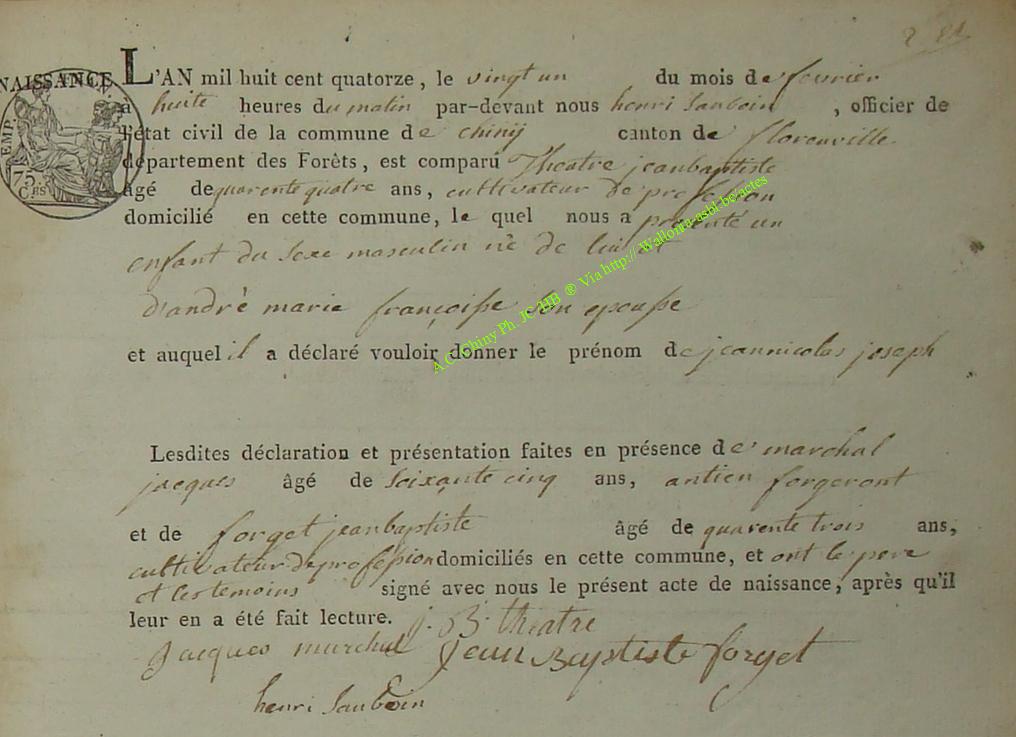 2
NAISSANCE.
TEMP.
75
C.mes
L'AN mil huit cent quatorze, le vingt un du mois de fevrier
a huite heures du matin par-devant nous henri Sauboin, officier de
l'état civil de la commune de chinij canton de florenville
département des Forêts, est comparu Theatre jeanbaptiste
âgé de quarente quatre ans, cultivateur de profession
domicilié en cette commune, le quel nous a présenté un
enfant du sexe masculin né de lui et
d'andrè marie françoisse son epousse
et auquel il a déclaré vouloir donner le prénom de jeannicolas joseph
Lesdites déclaration et présentation faites en présence de marchal
jacques âgé de soixante cinq ans, antien forgeront
et de forget jeanbaptiste âgé de quarente trois ans,
cultivateur de profession domiciliés en cette commune, et ont le pere
et les temoins signé avec nous le présent acte de naissance, après qu'il
leur en a été fait lecture.
j. B. theatre
Jacques marchal Jean Baptiste forget
henri Sauboin
A.C. Chiny Ph. JC HB ® Via http://Wallonia-asbl-be/actes